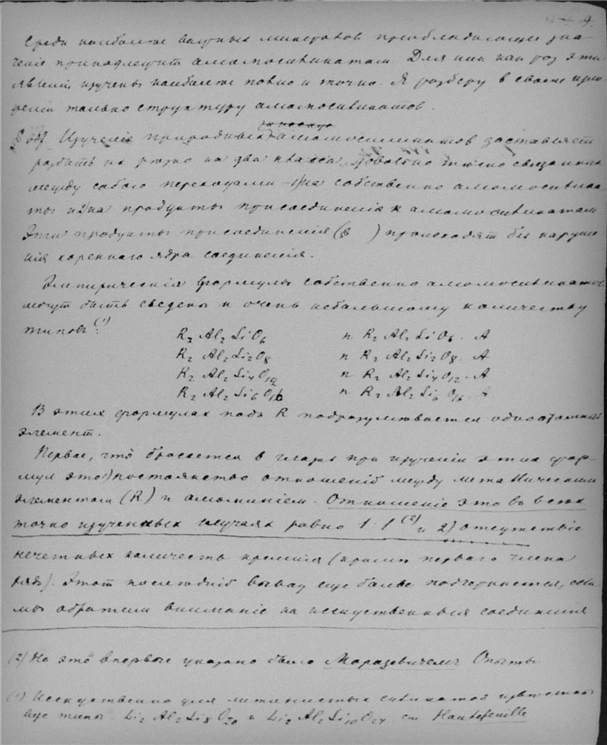 Среди наиболѣе важныхъ минераловъ преобладающее зна-
ченіе принадлежитъ алюмосиликатамъ. Для нихъ какъ разъ эти
явленія изучены наиболѣе полно и точно. Я разберу въ своемъ
только структуру алюмосиликатовъ.
Изученіе природныхъ алюмосиликатовъ заставляетъ
разбить ихъ рѣзко на два класса, довольно тѣсно связанные
между собою переходами — 1) на собственно алюмосилика-
ты и 2) на продукты присоединенія къ алюмосиликатамъ
Эти продукты присоединенія (§ ) происходятъ безъ наруше-
нія кореннаго ядра соединенія.
Эмпирическія формулы собственно алюмосиликатовъ
могутъ быть сведены къ очень небольшому количеству
типовъ (1)
R2 Al2 SiO6 n R2 Al2 SiO6 . A
R2 Al2 Si2O8 n R2 Al2 Si2O8 . A
R2 Al2 Si4O12 n R2 Al2 Si4O12 . A
R2 Al2 Si6O16 n R2 Al2 Si6O16 . A
Въ этихъ формулахъ подъ R подразумѣвается одноатомный
элементъ.
Первое, что бросается въ глаза при изученіи этихъ фор-
мулъ это 1) постоянство отношеній между металлическимъ
элементомъ (R) и алюминіемъ. Отношеніе это во всѣхъ
точно изученныхъ случаяхъ равно 1 : 1 (2) и 2) отсутствіе
нечетныхъ количествъ кремнія (кромѣ перваго члена
ряда). Этотъ послѣдній выводъ еще болѣе подтверждается, если
мы обратимъ вниманіе на искусственныя соединенія
(2) На это впервые указано было Морозевичемъ Опыты
(1) Искусственно для литинистыхъ силикатовъ извѣстны
еще типы Li2 Al2 Si8 O20 и Li2 Al2 Si10 O24 см Hautefeuille